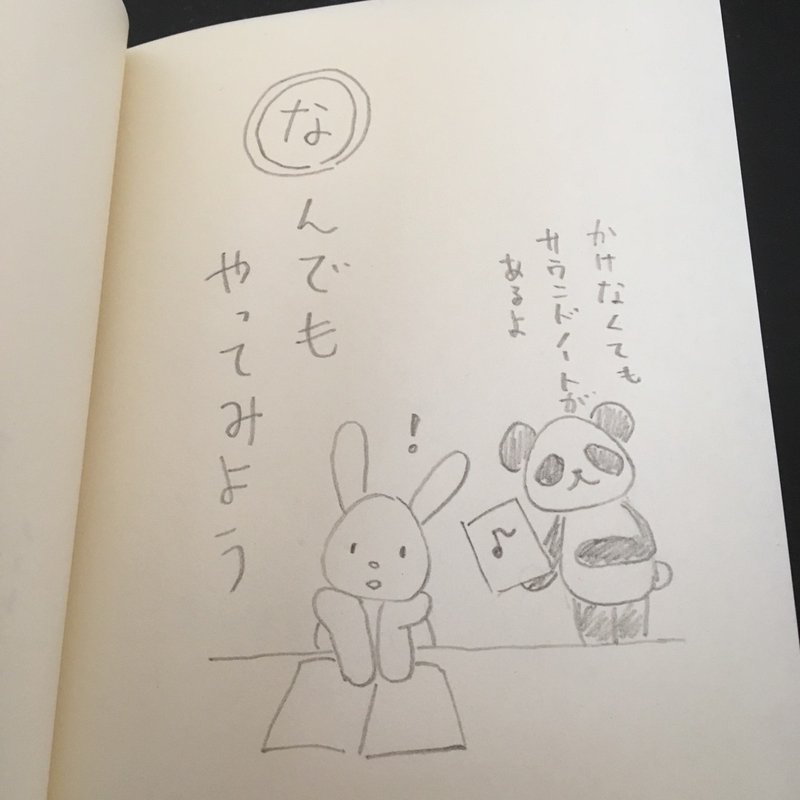 かけなくても
サウンドノートが
あるよ
！
なんでも
やってみよう